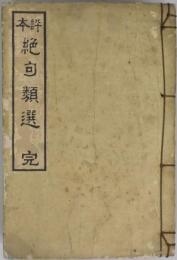 評本
絶句類選 完